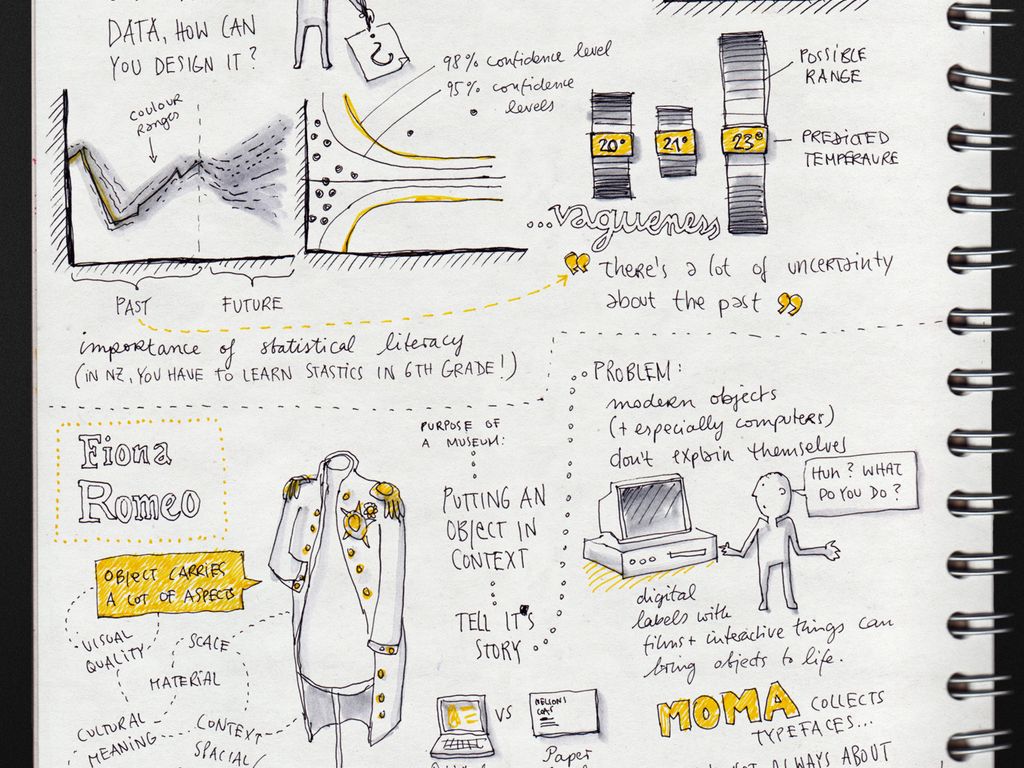 DATA, HOW CAN
YOU DESIGN IT?
?
COULOUR
RANGES
98% confidence level
95% confidence
levels
20°
21°
23°
POSSIBLE
RANGE
PREDICTED
TEMPERAURE
...vagueness
PAST
FUTURE
"THERE'S a lot of uncertainty
about the past"
importance of statistical literacy
(IN NZ, YOU HAVE TO LEARN STASTICS IN 6TH GRADE!)
Fiona
Romeo
OBJECT CARRIES
A LOT OF ASPECTS
VISUAL
QUALITY
SCALE
MATERIAL
CULTURAL
MEANING
CONTEXT
SPACIAL/
PURPOSE OF
A MUSEUM:
PUTTING AN
OBJECT IN
CONTEXT
TELL IT'S
STORY
PROBLEM:
modern objects
(+ especially computers)
don't explain themselves
HUH? WHAT
DO YOU DO?
digital
labels with
films + interactive things can
bring objects to life.
VS
NELSON'S
COAT
Paper
MOMA COLLECTS
TYPEFACES...
ALWAYS ABOUT